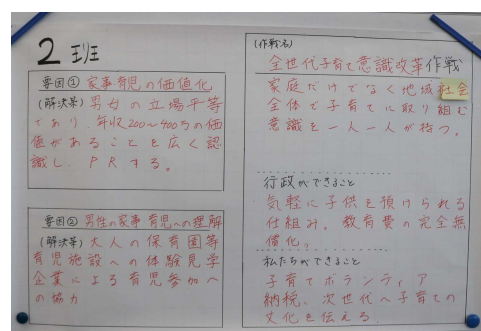 2班
要因① 家事育児の価値化
(解決策) 男女の立場平等
であり、年収200〜400万の価
値があることを広く認
識し、PRする。
要因② 男性の家事育児への理解
(解決策) 大人の保育園等
育児施設への体験見学
企業による育児参加へ
の協力
(作戦名)
全世代子育て意識改革作戦
家庭だけでなく地域社会
全体で子育てに取り組む
意識を一人一人が持つ。
行政ができること
気軽に子供を預けられる
仕組み。教育費の完全無
償化。
私たちができること
子育てボランティア
納税、次世代へ子育ての
文化を伝える。